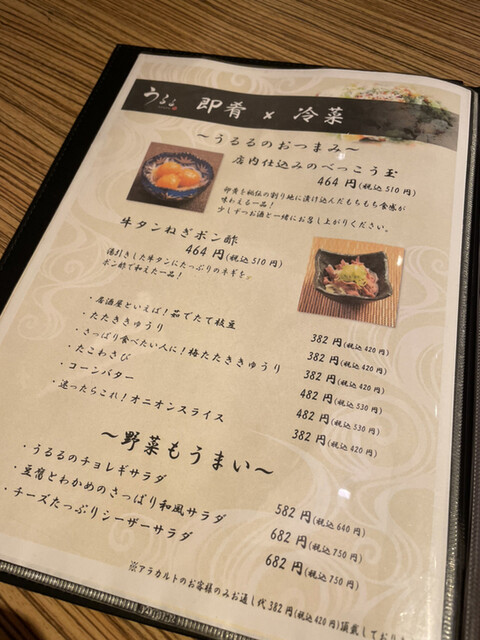 うるる 即肴 × 冷菜
～うるるのおつまみ～
店内仕込みのべっこう玉
464円(税込510円)
卵黄を秘伝の割り地に漬け込んだもちもち食感が
味わえる一品！
少しずつお酒と一緒にお召し上がりください。
牛タンねぎポン酢
464円(税込510円)
湯引きした牛タンにたっぷりのネギを。
ポン酢で和えた一品！
・居酒屋といえば！茹でたて枝豆 382円(税込420円)
・たたききゅうり 382円(税込420円)
・さっぱり食べたい人に！梅たたききゅうり 382円(税込420円)
・たこわさび 482円(税込530円)
・コーンバター 482円(税込530円)
・迷ったらこれ！オニオンスライス 382円(税込420円)
～野菜もうまい～
・うるるのチョレギサラダ 582円(税込640円)
・豆腐とわかめのさっぱり和風サラダ 682円(税込750円)
・チーズたっぷりシーザーサラダ 682円(税込750円)
※アラカルトのお客様のみお通し代382円(税込420円)頂戴しており